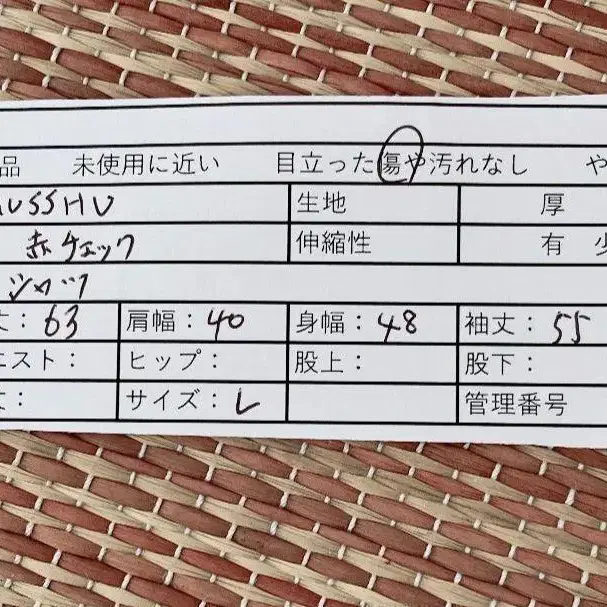 品 未使用に近い 目立った傷や汚れなし や
USSHU 生地 厚
赤チェック 伸縮性 有 少
シャツ
丈：63 肩幅：40 身幅：48 袖丈：55
エスト： ヒップ： 股上： 股下：
丈： サイズ：L 管理番号